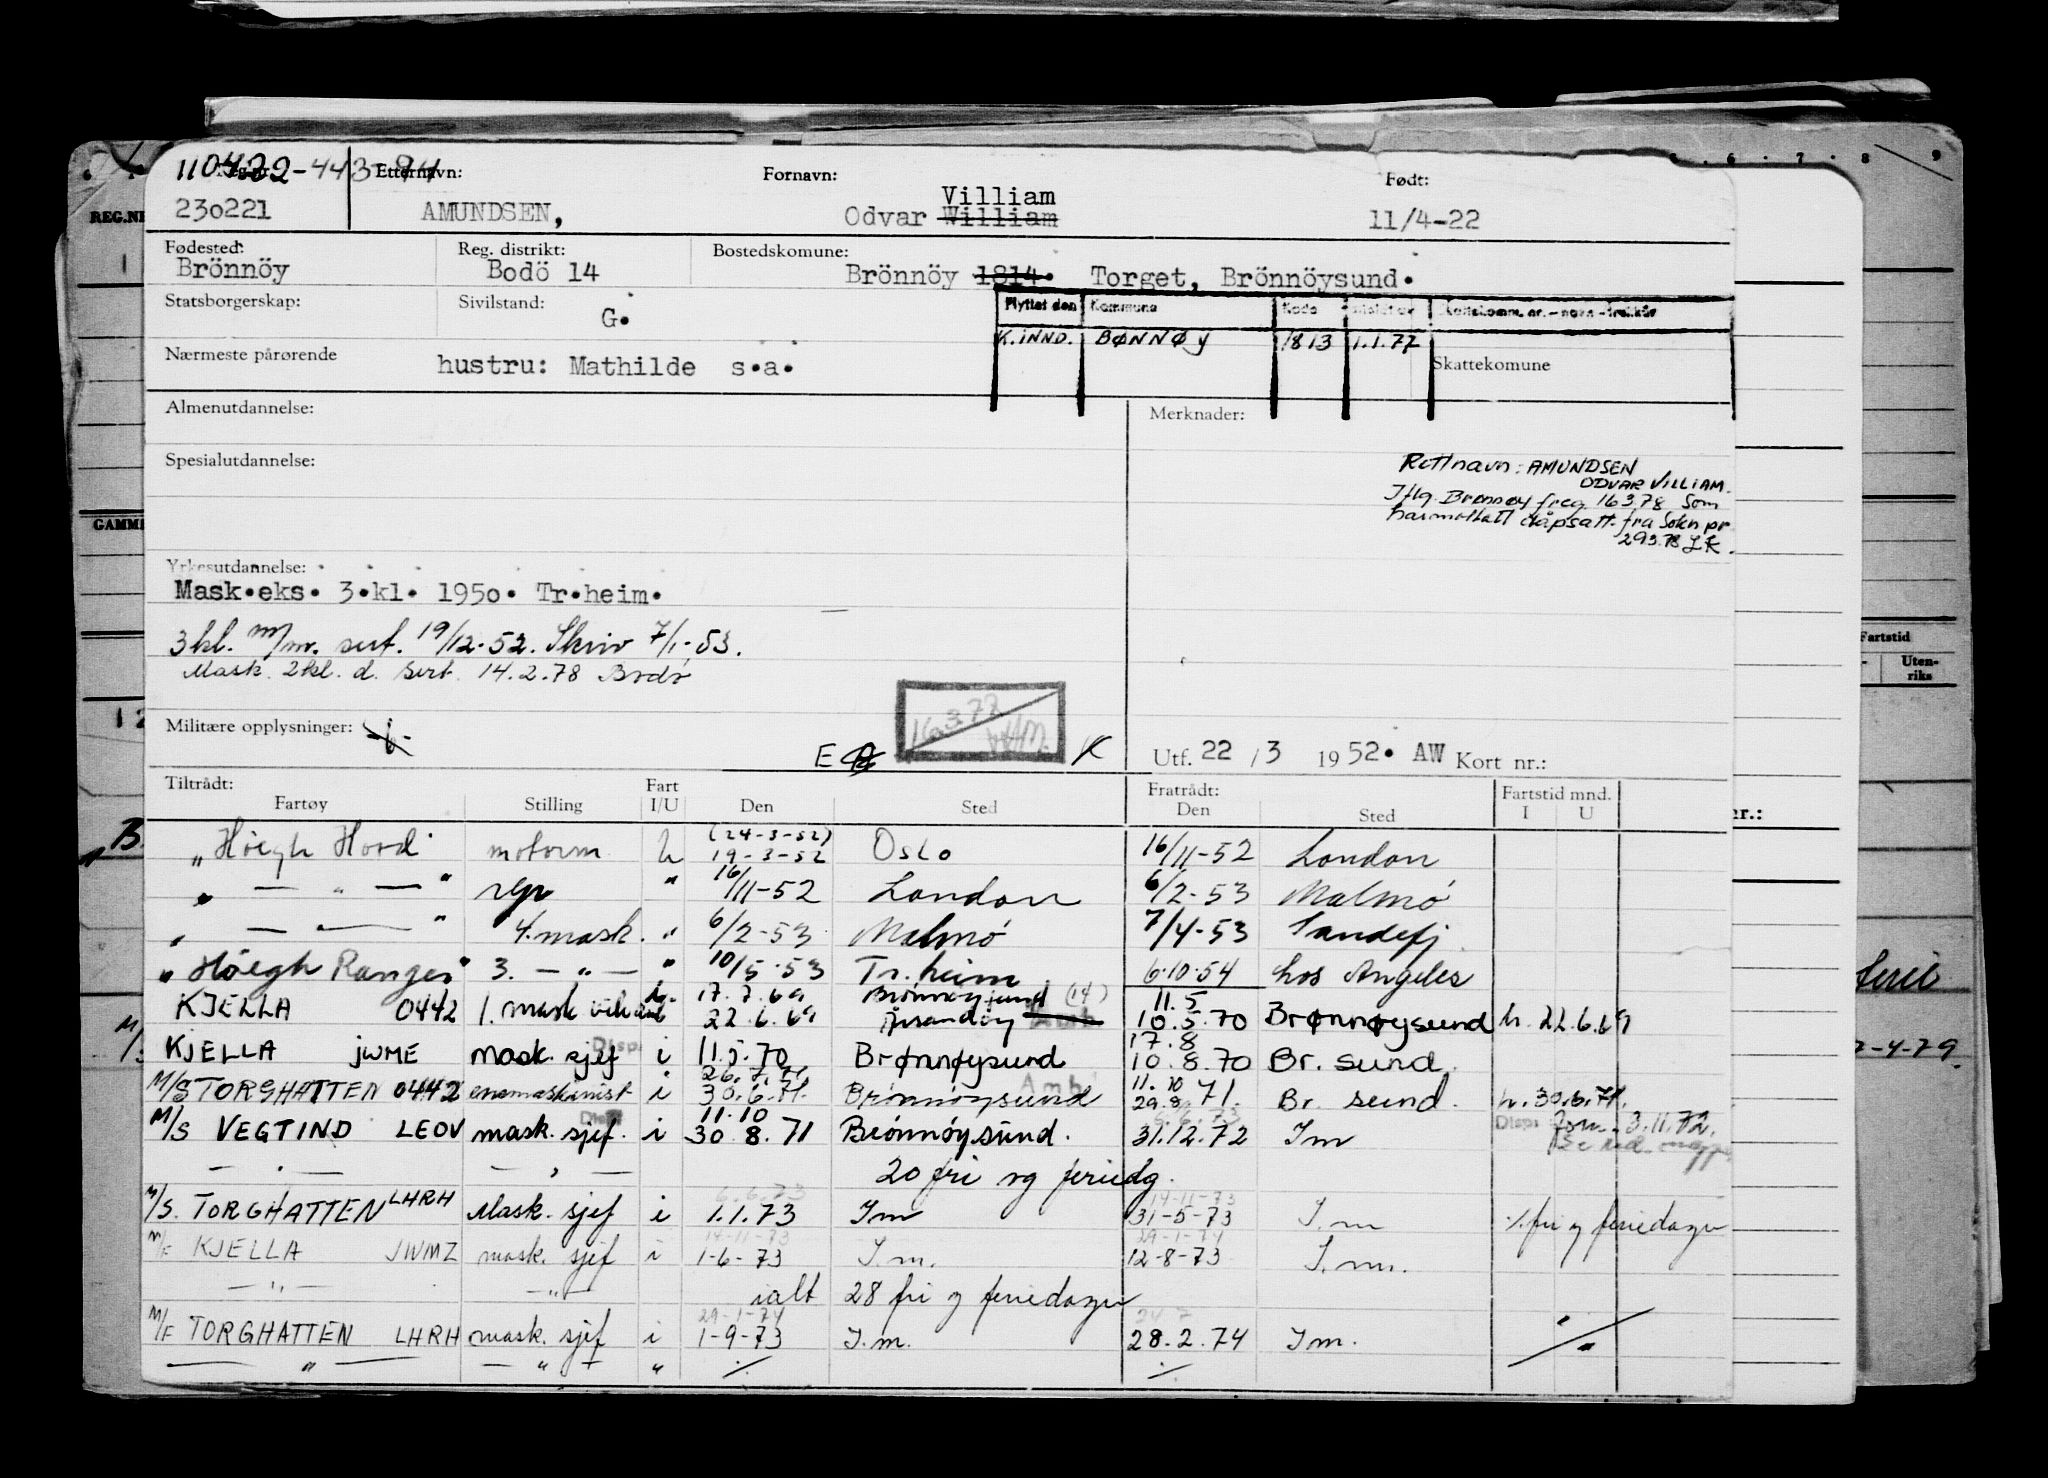 REG.NR
Etternavn: Fornavn: Født:
230221 AMUNDSEN, Odvar William Villiam 11/4-22
Fødested: Reg. distrikt: Bostedskomune:
Brönnöy Bodö 14 Brönnöy 1814. Torget, Brönnöysund.
Statsborgerskap: Sivilstand: G.
Flyttet den Kommune Kode
K.INND. BØNNØY 1813 1.1.77
Nærmeste pårørende hustru: Mathilde s.a. Skattekomune
Almenutdannelse: Merknader:
Spesialutdannelse:
Rettnavn: AMUNDSEN
ODVAR VILLIAM.
Iflg. Brønnøy freg 163.78 som
har mottatt dåpsatt. fra Sokn pr
293.78
Yrkesutdannelse:
Mask.eks. 3.kl. 1950. Tr.heim.
3 kl. sert. 19/12-52. Skriv 7/1-53.
Mask. 2 kl. d. sert. 14.2.78 Bodö
Militære opplysninger:
163.77
E K
Utf. 22 / 3 1952. AW Kort nr.:
Tiltrådt: Fratrådt: Fartstid mnd.
Fartøy Stilling Fart I/U Den Sted Den Sted I U
(24-3-52)
„Höegh Hord" motorm U 19-3-52 Oslo 16/11-52 London
„ — " — " rep " 16/11-52 London 6/2-53 Malmö
„ — " 4. mask. " 6/2-53 Malmö 7/4-53 Sandefj.
„Höegh Ranger" 3. — " — " 10/5-53 Tr.heim 6-10-54 Los Angeles
17.7.69 Brønnøysund (14) 11.5
KJELLA 0442 1. mask i 22.6.69 10.5.70 Brønnøysund h. 22.6.69
17.8
KJELLA JWME mask. sjef i 11.5.70 Brønnøysund 10.8.70 Br. sund.
11.10
M/S TORGHATTEN 0442 enemaskinist i 30.6.71. Brönnöysund 29.8 71. Br. sund. h. 30.6.71.
11.10
M/S VEGTIND LEOV mask. sjef. i 30.8.71 Brönnöysund. 31.12.72 Im 3.11.72.
— " — — " — 20 fri og feriedg.
6.6.73 14-11-73
M/S. TORGHATTEN LHRH Mask. sjef i 1.1.73 Im 31-5-73 I.m ./. fri og feriedager
14-11-73 29-1-74
M/F KJELLA JWMZ mask. sjef i 1-6-73 I.m. 12-8-73 I.m.
— " — — " — ialt 28 fri og feriedager
29-1-74
M/F TORGHATTEN LHRH mask. sjef i 1-9-73 I.m. 28.2.74 Im.
— " — — " — " ./. ./.
Fartstid
Uten-
riks